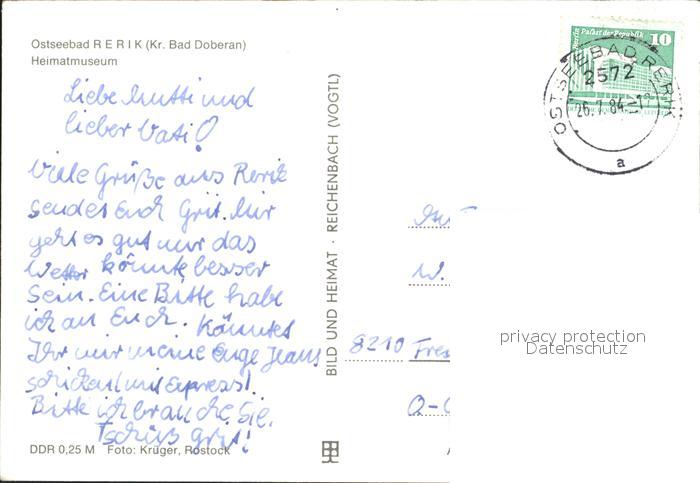 Ostseebad RERIK (Kr. Bad Doberan)
Heimatmuseum
Liebe Mutti und
lieber Vati!
Viele Grüße aus Rerik
sendet Euch Grit. Mir
geht es gut nur das
Wetter könnte besser
sein. Eine Bitte habe
ich an Euch. Könntet
Ihr mir meine enge Jeans
schicken (mit Express).
Bitte ich brauche Sie.
Tschüß Grit!
DDR 0,25 M Foto: Krüger, Rostock
BILD UND HEIMAT · REICHENBACH (VOGTL)
Berlin Palast der Republik 10
OSTSEEBAD RERIK
2572
26.7.84
a
W.
8210 Fre
privacy protection
Datenschutz